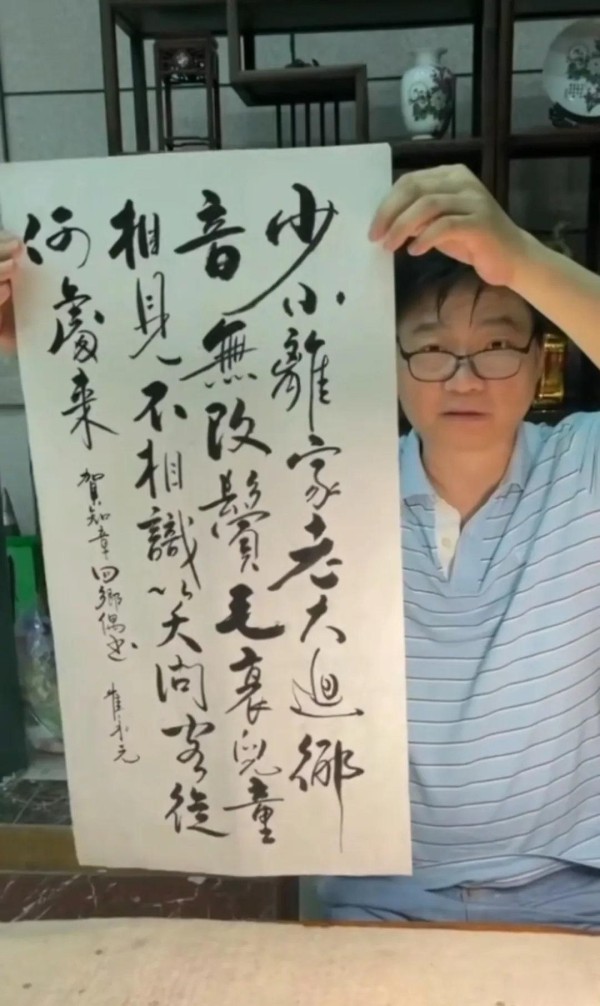 少小離家老大迴鄉
音無改鬢毛衰兒童
相見不相識笑問客從
何處來
賀知章回鄉偶書 崔永元